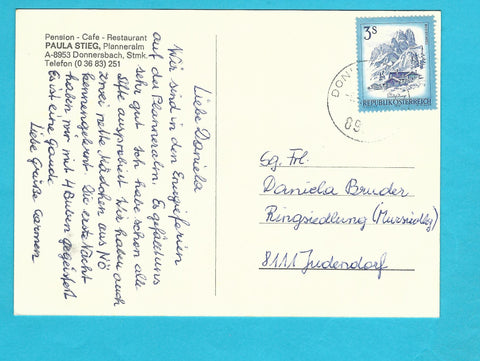 Pension - Cafe - Restaurant
PAULA STIEG, Planneralm
A-8953 Donnersbach, Stmk.
Telefon (0 36 83) 251
Liebe Daniela
Wir sind in den Energieferien
auf der Planneralm. Es gefällt uns
sehr gut. Ich habe schon alle
Lifte ausprobiert. Wir haben auch
zwei nette Mädchen aus NÖ
kennengelernt. Die erste Nacht
haben wir mit 4 Buben gegeistert
Es ist eine Gaude.
Liebe Grüße Carmen
3S
REPUBLIK ÖSTERREICH
DON
89
Sg. Frl.
Daniela Bruder
Ringsiedlung (Mursiedlg)
8111 Judendorf